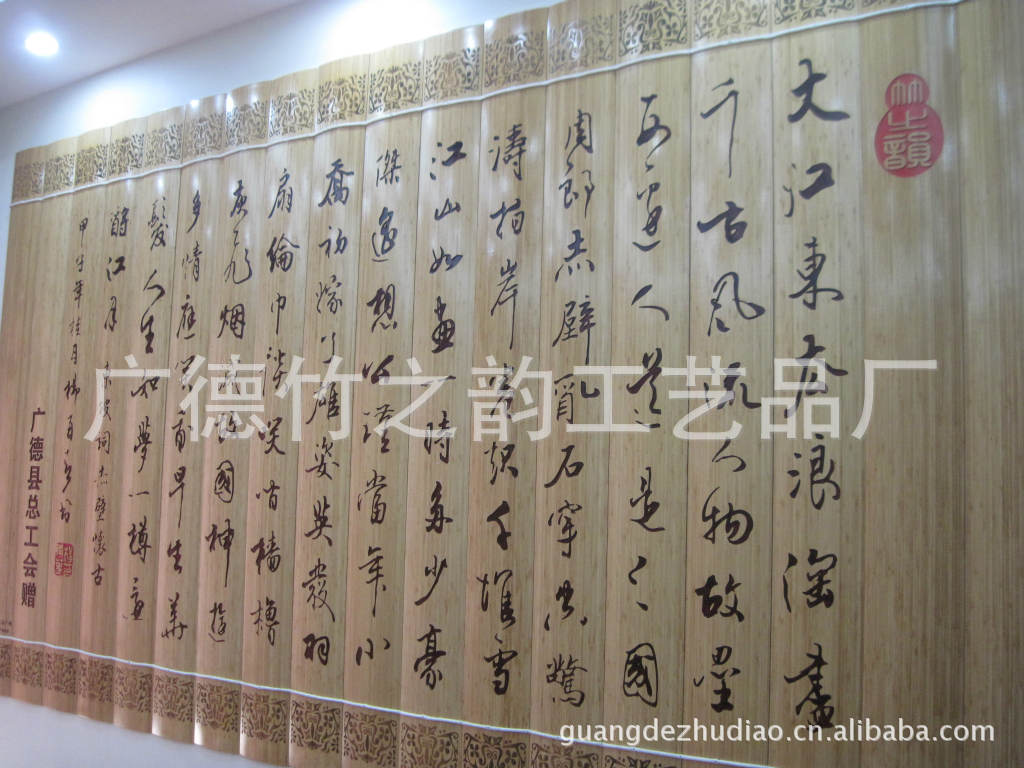 竹之韻
大江東去浪淘盡
千古風流人物故壘
西邊人道是三國
周郎赤壁亂石穿空驚
濤拍岸捲起千堆雪
江山如畫一時多少豪
傑遙想公瑾當年小
喬初嫁了雄姿英發羽
扇綸巾談笑間檣櫓
灰飛烟滅故國神遊
多情應笑我早生華
髮人生如夢一樽還
酹江月 東坡詞赤壁懷古
年桂月
广德县总工会赠
广德竹之韵工艺品厂
guangdezhudiao.cn.alibaba.com